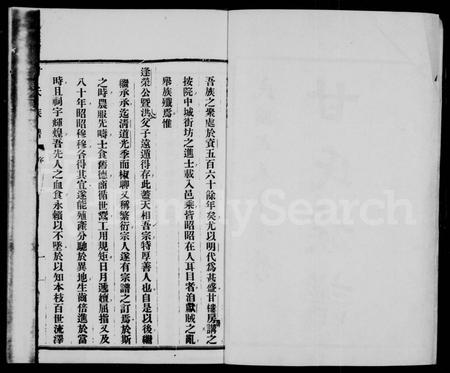 吾族之聚處於資五百六十餘年矣尤以明代為甚盛甘樓房講之
按院中城街坊之進士載入邑乘皆昭昭在人耳目者洎獻賊之亂
舉族殲焉惟
逢榮公暨洪父子遠遁得存此蓋天相吾宗特厚善人也自是以後繼
繼承承迄清道光季而椒聊又稱繁衍宗人遂有宗譜之訂焉於斯
之時農服先疇士食舊德商循世業工用規矩日月遞嬗屈指又及
八十年昭昭穆穆各得其宜遂能殖產分馳於異地生齒倍進於當
時且祠宇輝煌吾先人之血食永賴以不墜於以知本枝百世流澤
族譜
序
FamilySearch